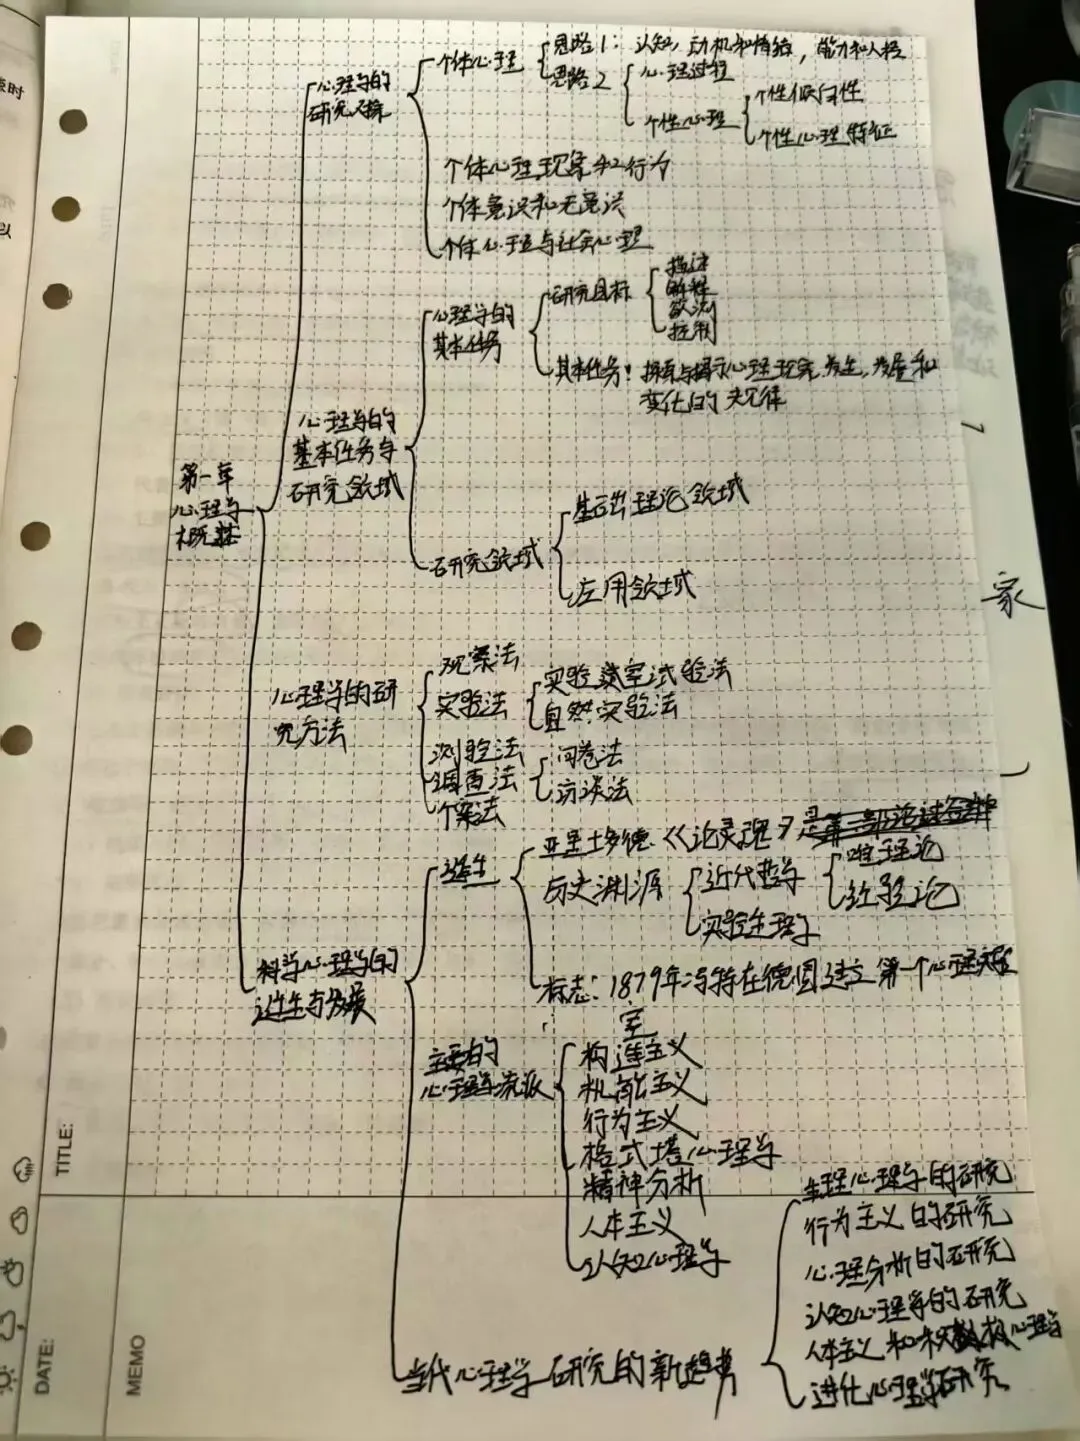 个体心理
思路1：认知，动机和情绪，能力和人格
思路2
心理过程
个性心理
个性倾向性
个性心理特征
心理学的
研究对象
个体心理现象和行为
个体意识和无意识
个体心理与社会心理
心理学的
基本任务
研究目标
描述
解释
预测
控制
其本任务：探索与揭示心理现象发生，发展和
变化的规律
心理学的
基本任务与
研究领域
第一章
心理学
概述
研究领域
基础理论领域
应用领域
家
心理学的研
究方法
观察法
实验法
实验室试验法
自然实验法
测验法
调查法
问卷法
访谈法
个案法
诞生
亚里士多德《论灵魂》
历史渊源
近代哲学
唯理论
经验论
实验生理学
标志：1879年冯特在德国建立第一个心理实验
室
科学心理学的
诞生与发展
主要的
心理学流派
构造主义
机能主义
行为主义
格式塔心理学
精神分析
人本主义
认知心理学
当代心理学研究的新趋势
生理心理学的研究
行为主义的研究
心理分析的研究
认知心理学的研究
人本主义和积极心理学
进化心理学研究
TITLE:
DATE:
MEMO